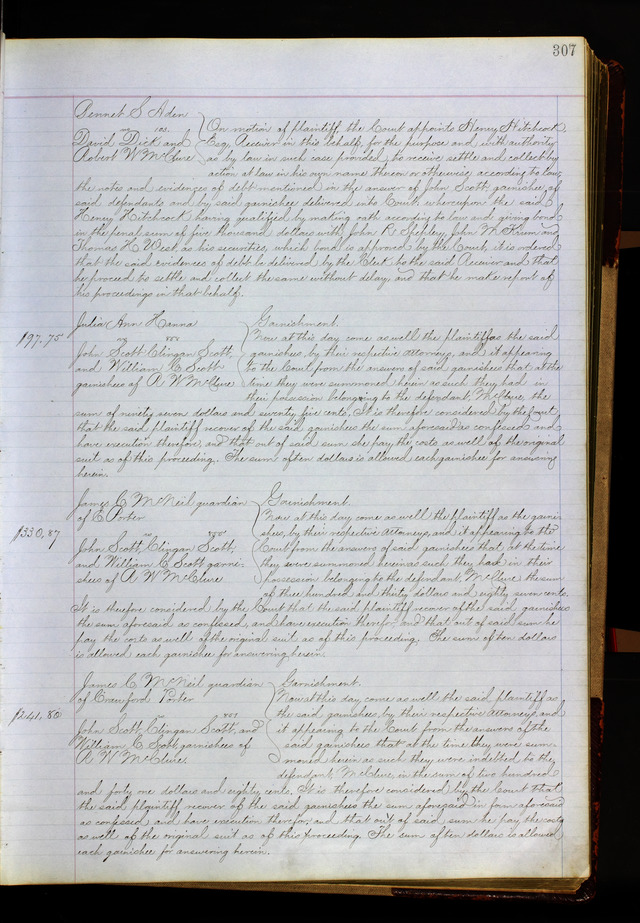 307
Bennet S Aden
vs 101.
David Dick and
Robert W McClure
On motion of plaintiff, the Court appoints Henry Hitchcock,
Esq. Receiver in this behalf, for the purpose and with authority
as by law in such case provided, to receive settle and collect by
action at law in his own name thereon or otherwise, according to law,
the notes and evidences of debt mentioned in the answer of John Scott garnishee of
said defendants and by said garnishee delivered into Court, whereupon the said
Henry Hitchcock having qualified by making oath according to law and giving bond
in the penal sum of five thousand dollars with John R Shepley, John M Krum and
Thomas H West, as his securities, which bond is approved by the Court, it is ordered
that the said evidences of debt be delivered by the Clerk to the said Receiver and that
he proceed to settle and collect the same without delay, and that he make report of
his proceedings in that behalf.
$97.75
Julia Ann Hanna
vs
John Scott, Clingan Scott,
and William C Scott
garnishees of A W McClure
Garnishment.
Now at this day come as well the plaintiff as the said
garnishees, by their respective attorneys, and it appearing
to the Court from the answers of said garnishees that at the
time they were summoned herein as such they had in
their possession belonging to the defendant, McClure, the
sum of ninety seven dollars and seventy five cents. It is therefore considered by the Court
that the said plaintiff recover of the said garnishees the sum aforesaid as confessed and
have execution therefor, and that out of said sum she pay the costs as well of the original
suit as of this proceeding. The sum of ten dollars is allowed each garnishee for answering
herein.
$330.87
James C McNeil guardian
of E Porter
vs
John Scott, Clingan Scott,
and William C Scott garni-
shees of A W McClure
Garnishment.
Now at this day come as well the plaintiff as the garni-
shees, by their respective attorneys, and it appearing to the
Court from the answers of said garnishees that at the time
they were summoned herein as such they had in their
possession belonging to the defendant, McClure the sum
of three hundred and thirty dollars and eighty seven cents.
It is therefore considered by the Court that the said plaintiff recover of the said garnishees
the sum aforesaid as confessed, and have execution therefor, and that out of said sum he
pay the costs as well of the original suit as of this proceeding. The sum of ten dollars
is allowed each garnishee for answering herein.
$241.80
James C McNeil guardian
of Crawford Porter
vs 701
John Scott, Clingan Scott, and
William C Scott, garnishees of
A W McClure.
Garnishment.
Now at this day come as well the said plaintiff as
the said garnishees, by their respective attorneys, and
it appearing to the Court from the answers of the
said garnishees that at the time they were sum-
moned herein as such they were indebted to the
defendant, McClure, in the sum of two hundred
and forty one dollars and eighty cents. It is therefore considered by the Court that
the said plaintiff recover of the said garnishees the sum aforesaid in form aforesaid
as confessed and have execution therefor, and that out of said sum he pay the costs
as well of the original suit as of this proceeding. The sum of ten dollars is allowed
each garnishee for answering herein.